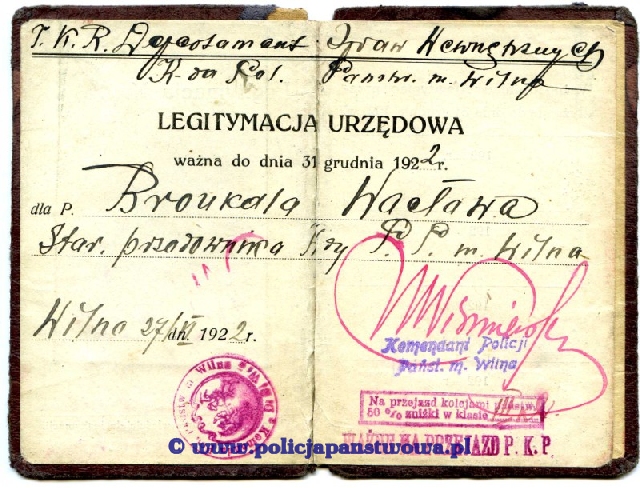 T. K. R. Departament Spraw Wewnętrznych
K-da Pol. Państw. m. Wilna
LEGITYMACJA URZĘDOWA
ważna do dnia 31 grudnia 1922 r.
dla P. Broukala Wacława
Star. przodownika przy P. P. m. Wilna
Wilno 27/VI dn. 1922 r.
Komendant Policji
Państ. m. Wilna
Na przejazd kolejami
50 % zniżki w klasie III
WAŻNE NA PRZEJAZD P. K. P
© www.policjapanstwowa.pl